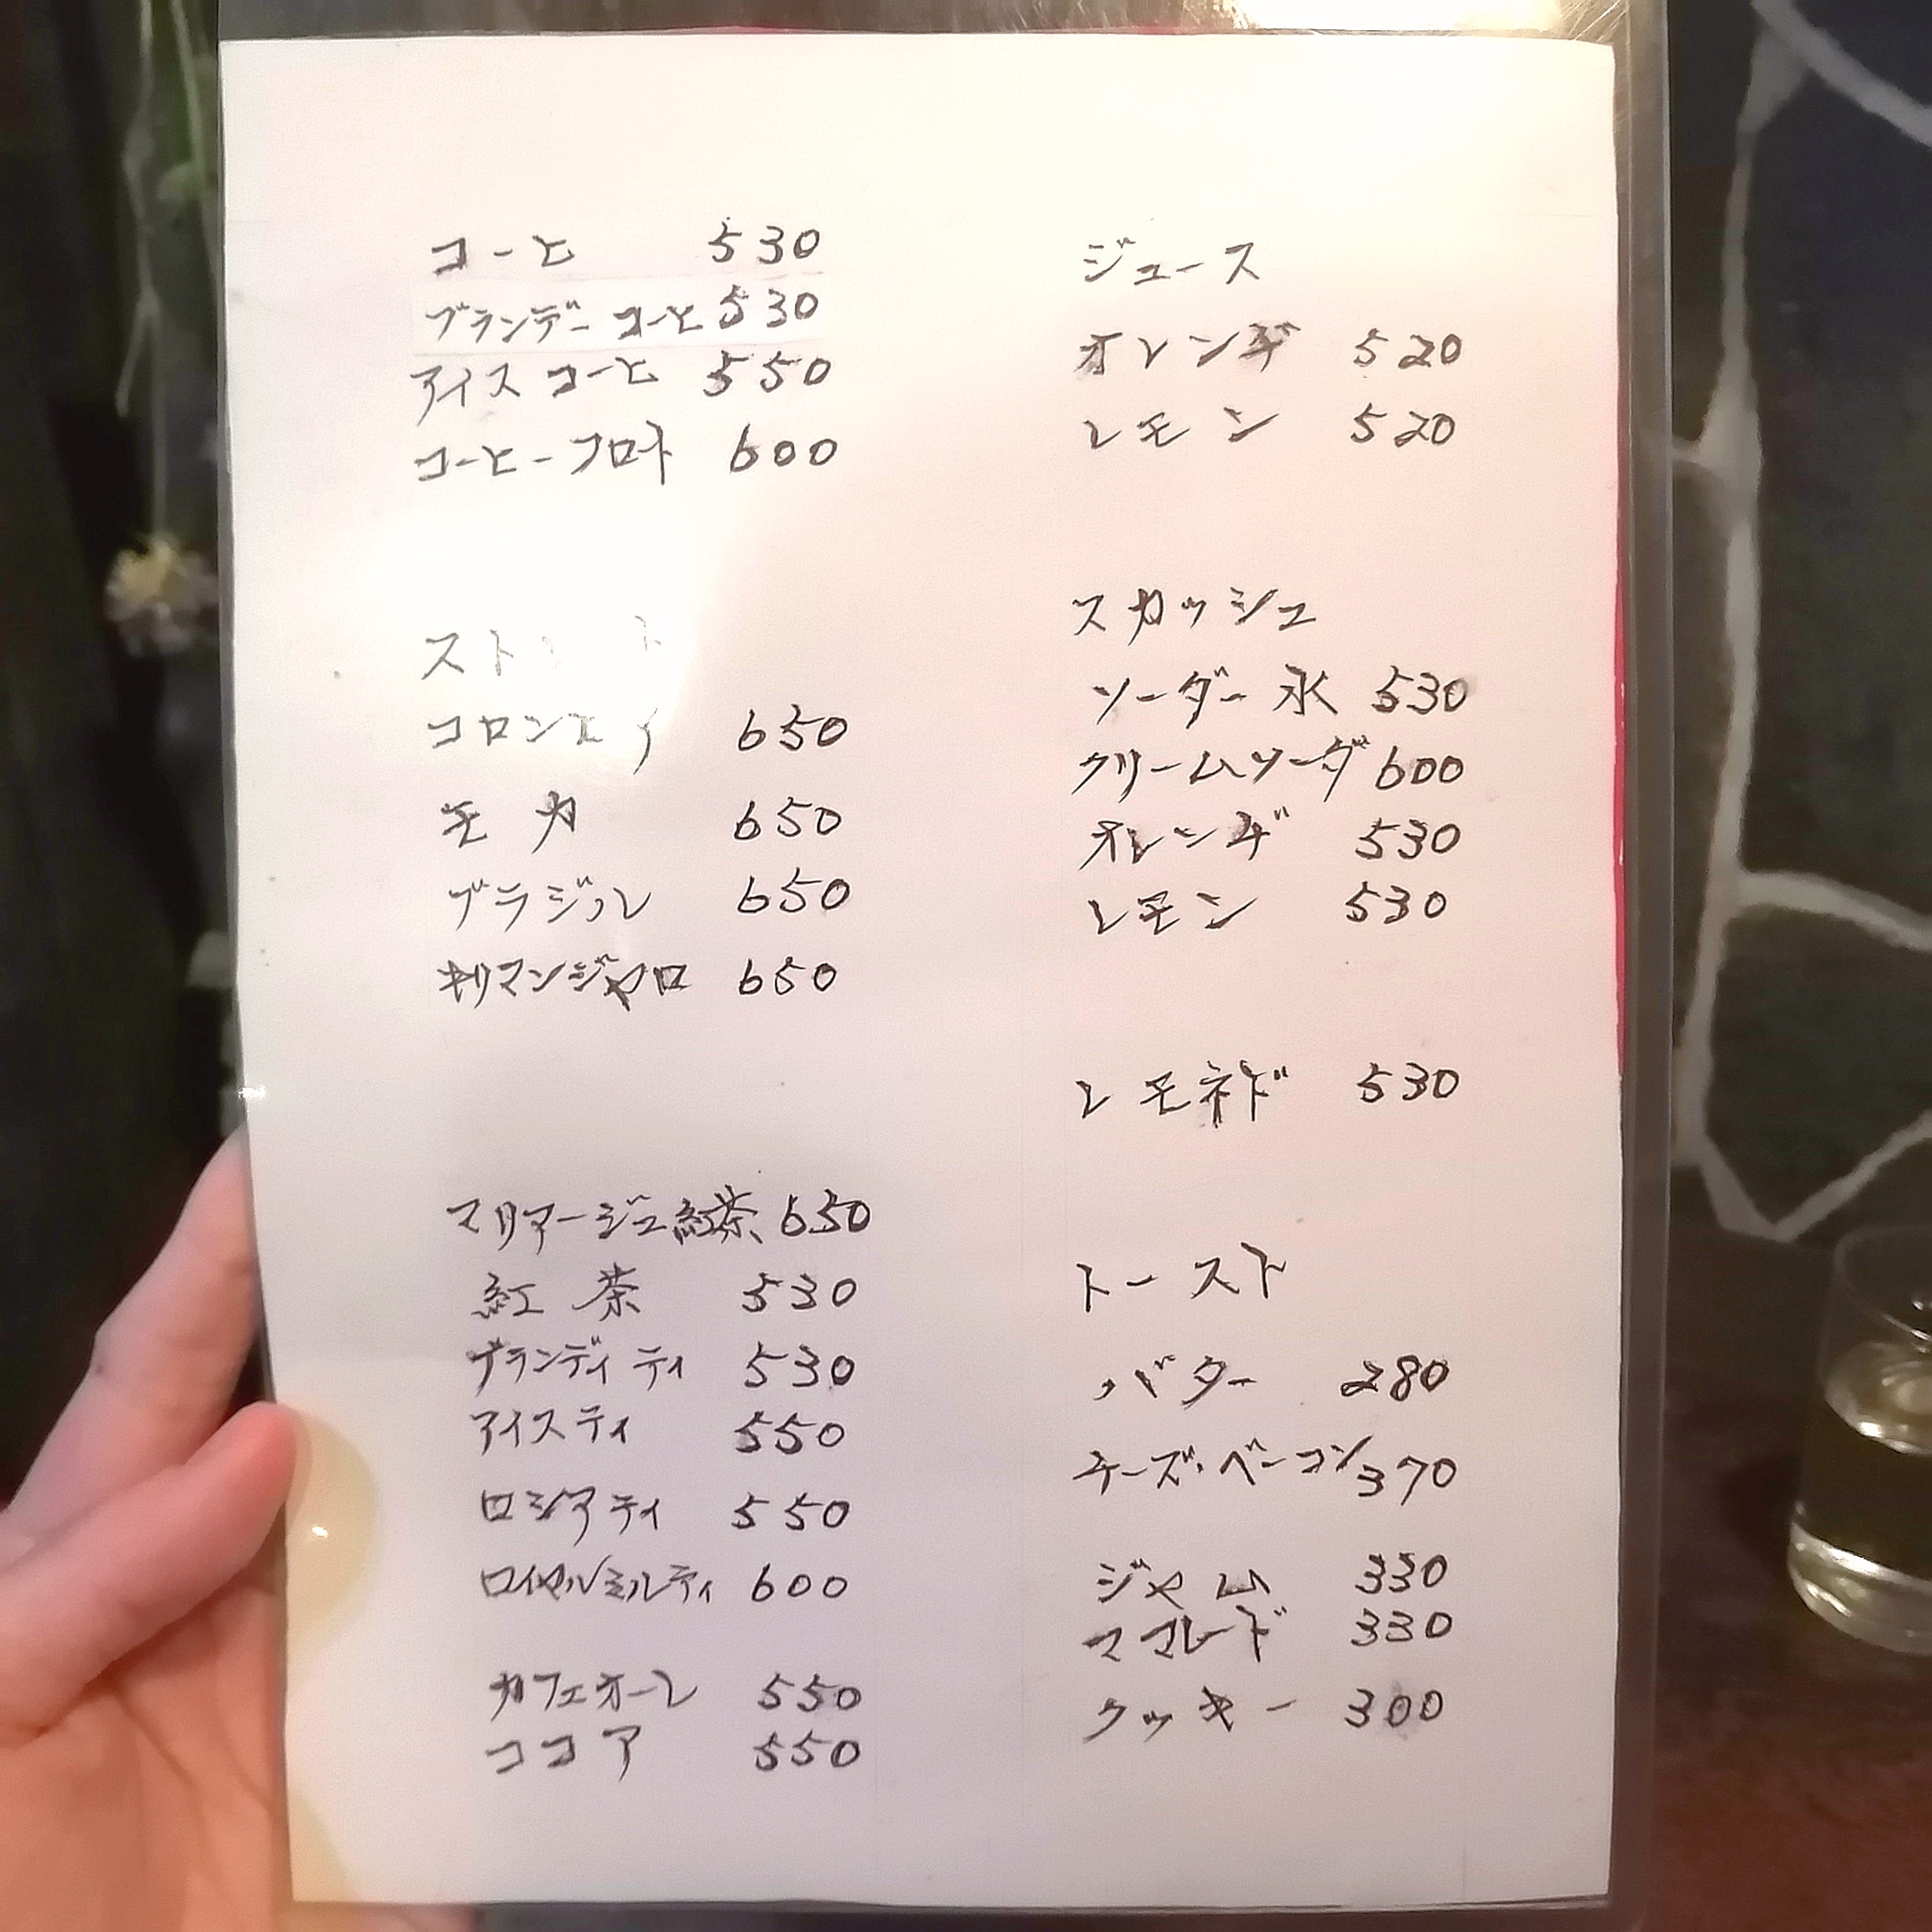 コーヒ 530
ブランデーコーヒ 530
アイスコーヒ 550
コーヒーフロト 600
コロンビィ 650
モカ 650
ブラジル 650
キリマンジャロ 650
マリアージュ紅茶 650
紅茶 530
ブランディティ 530
アイスティ 550
ロシアティ 550
ロイヤルミルティ 600
カフェオーレ 550
ココア 550
ジュース
オレンヂ 520
レモン 520
スカッシュ
ソーダー水 530
クリームソーダ 600
オレンヂ 530
レモン 530
レモネド 530
トースト
バター 280
チーズ・ベーコン 370
ジャム 330
ママレード 330
クッキー 300